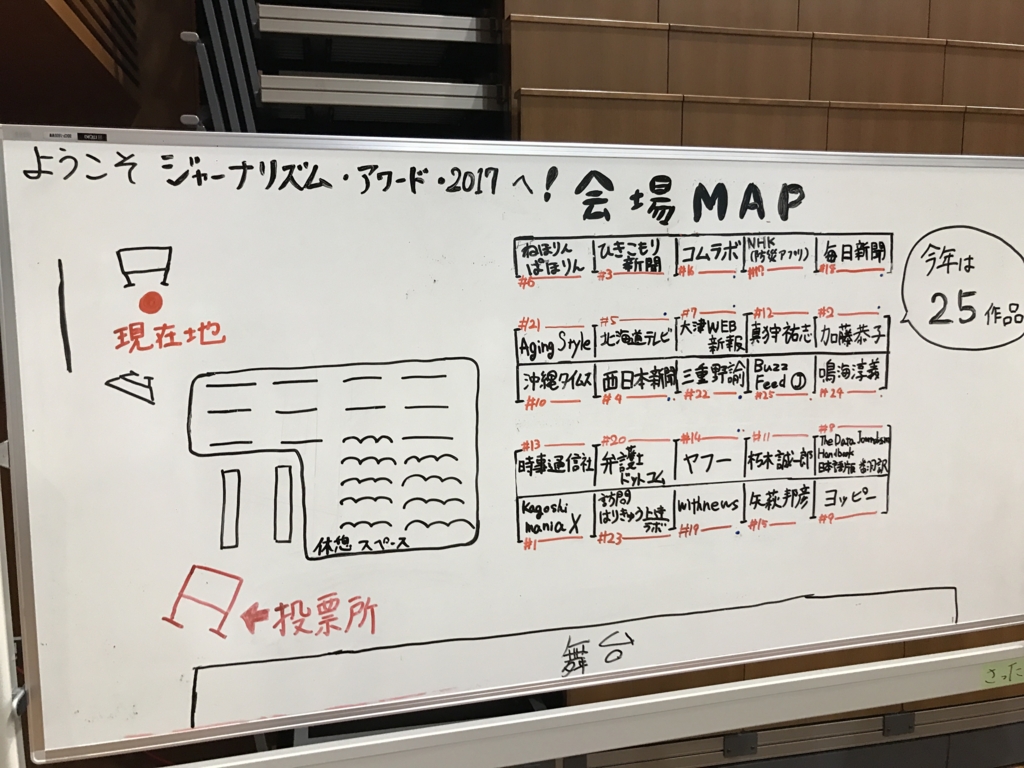 ようこそ ジャーナリズム・アワード・2017へ! 会場MAP
今年は
25作品
現在地
休憩スペース
投票所
舞台
ねほりん
ぱほりん
#6
ひきこもり
新聞
#3
コムラボ
#16
NHK
(防災アプリ)
毎日新聞
#18
#21
Aging Style
#5
北海道テレビ
#7
大津WEB
新報
#12
真狩祐志
#2
加藤恭子
沖縄タイムス
#10
西日本新聞
三重野諭
#22
Buzz
Feed
#25
鳴海淳義
#24
#13
時事通信社
#20
弁護士
ドットコム
#14
ヤフー
#11
朽木誠一郎
The Data Journalism
Handbook
日本語版
Kagoshi
mania X
#1
訪問
はりきゅう上達
ラボ
#23
withnews
#19
矢萩邦彦
#15
ヨッピー
#9
さった